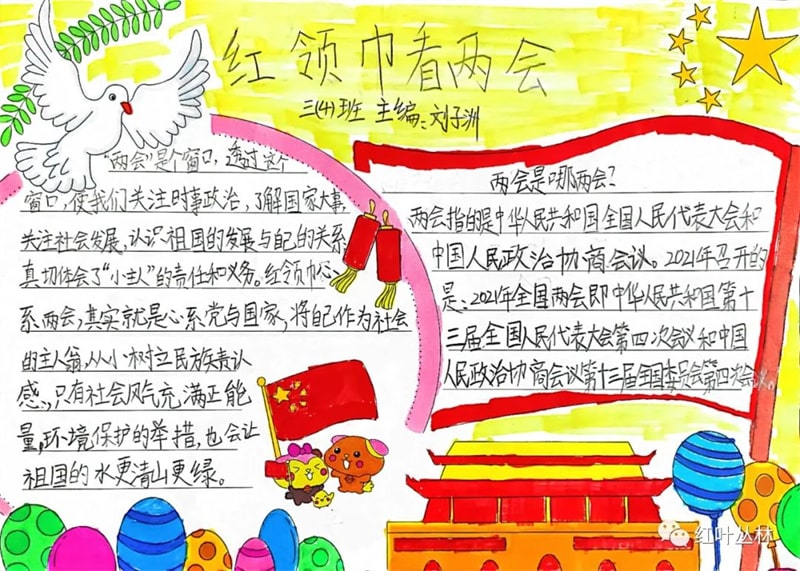 红领巾看两会
三(4)班 主编:刘子洲
“两会”是个窗口,透过这个
窗口,使我们关注时事政治,了解国家大事,
关注社会发展,认识祖国的发展与自己的关系,
真切体会了“小主人”的责任和义务。红领巾心
系两会,其实就是心系党与国家,将自己作为社会
的主人翁从小树立民族责认
感,只有社会风气充满正能
量,环境保护的举措,也会让
祖国的水更清山更绿。
两会是哪两会?
两会指的是中华人民共和国全国人民代表大会和
中国人民政治协商会议。2021年召开的
是:2021年全国两会即中华人民共和国第十
三届全国人民代表大会第四次会议和中国
人民政治协商会议第十三届全国委员会第四次会议。
红叶丛林